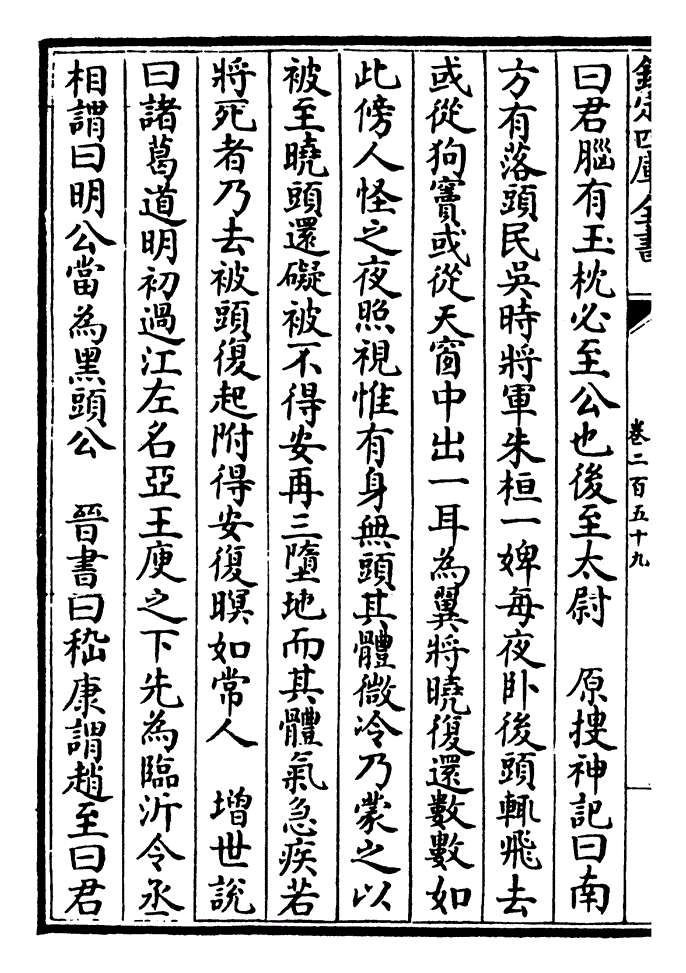 欽定四庫全書
卷二百五十九
曰君腦有玉枕必至公也後至太尉　原搜神記曰南
方有落頭民吳時將軍朱桓一婢每夜卧後頭輒飛去
或從狗竇或從天窗中出一耳為翼將曉復還數數如
此傍人怪之夜照視惟有身無頭其體微冷乃蒙之以
被至曉頭還礙被不得安再三墮地而其體氣急疾若
將死者乃去被頭復起附得安復暝如常人　增世說
曰諸葛道明初過江左名亞王庾之下先為臨沂令丞
相謂曰明公當為黑頭公　晉書曰嵇康謂趙至曰君